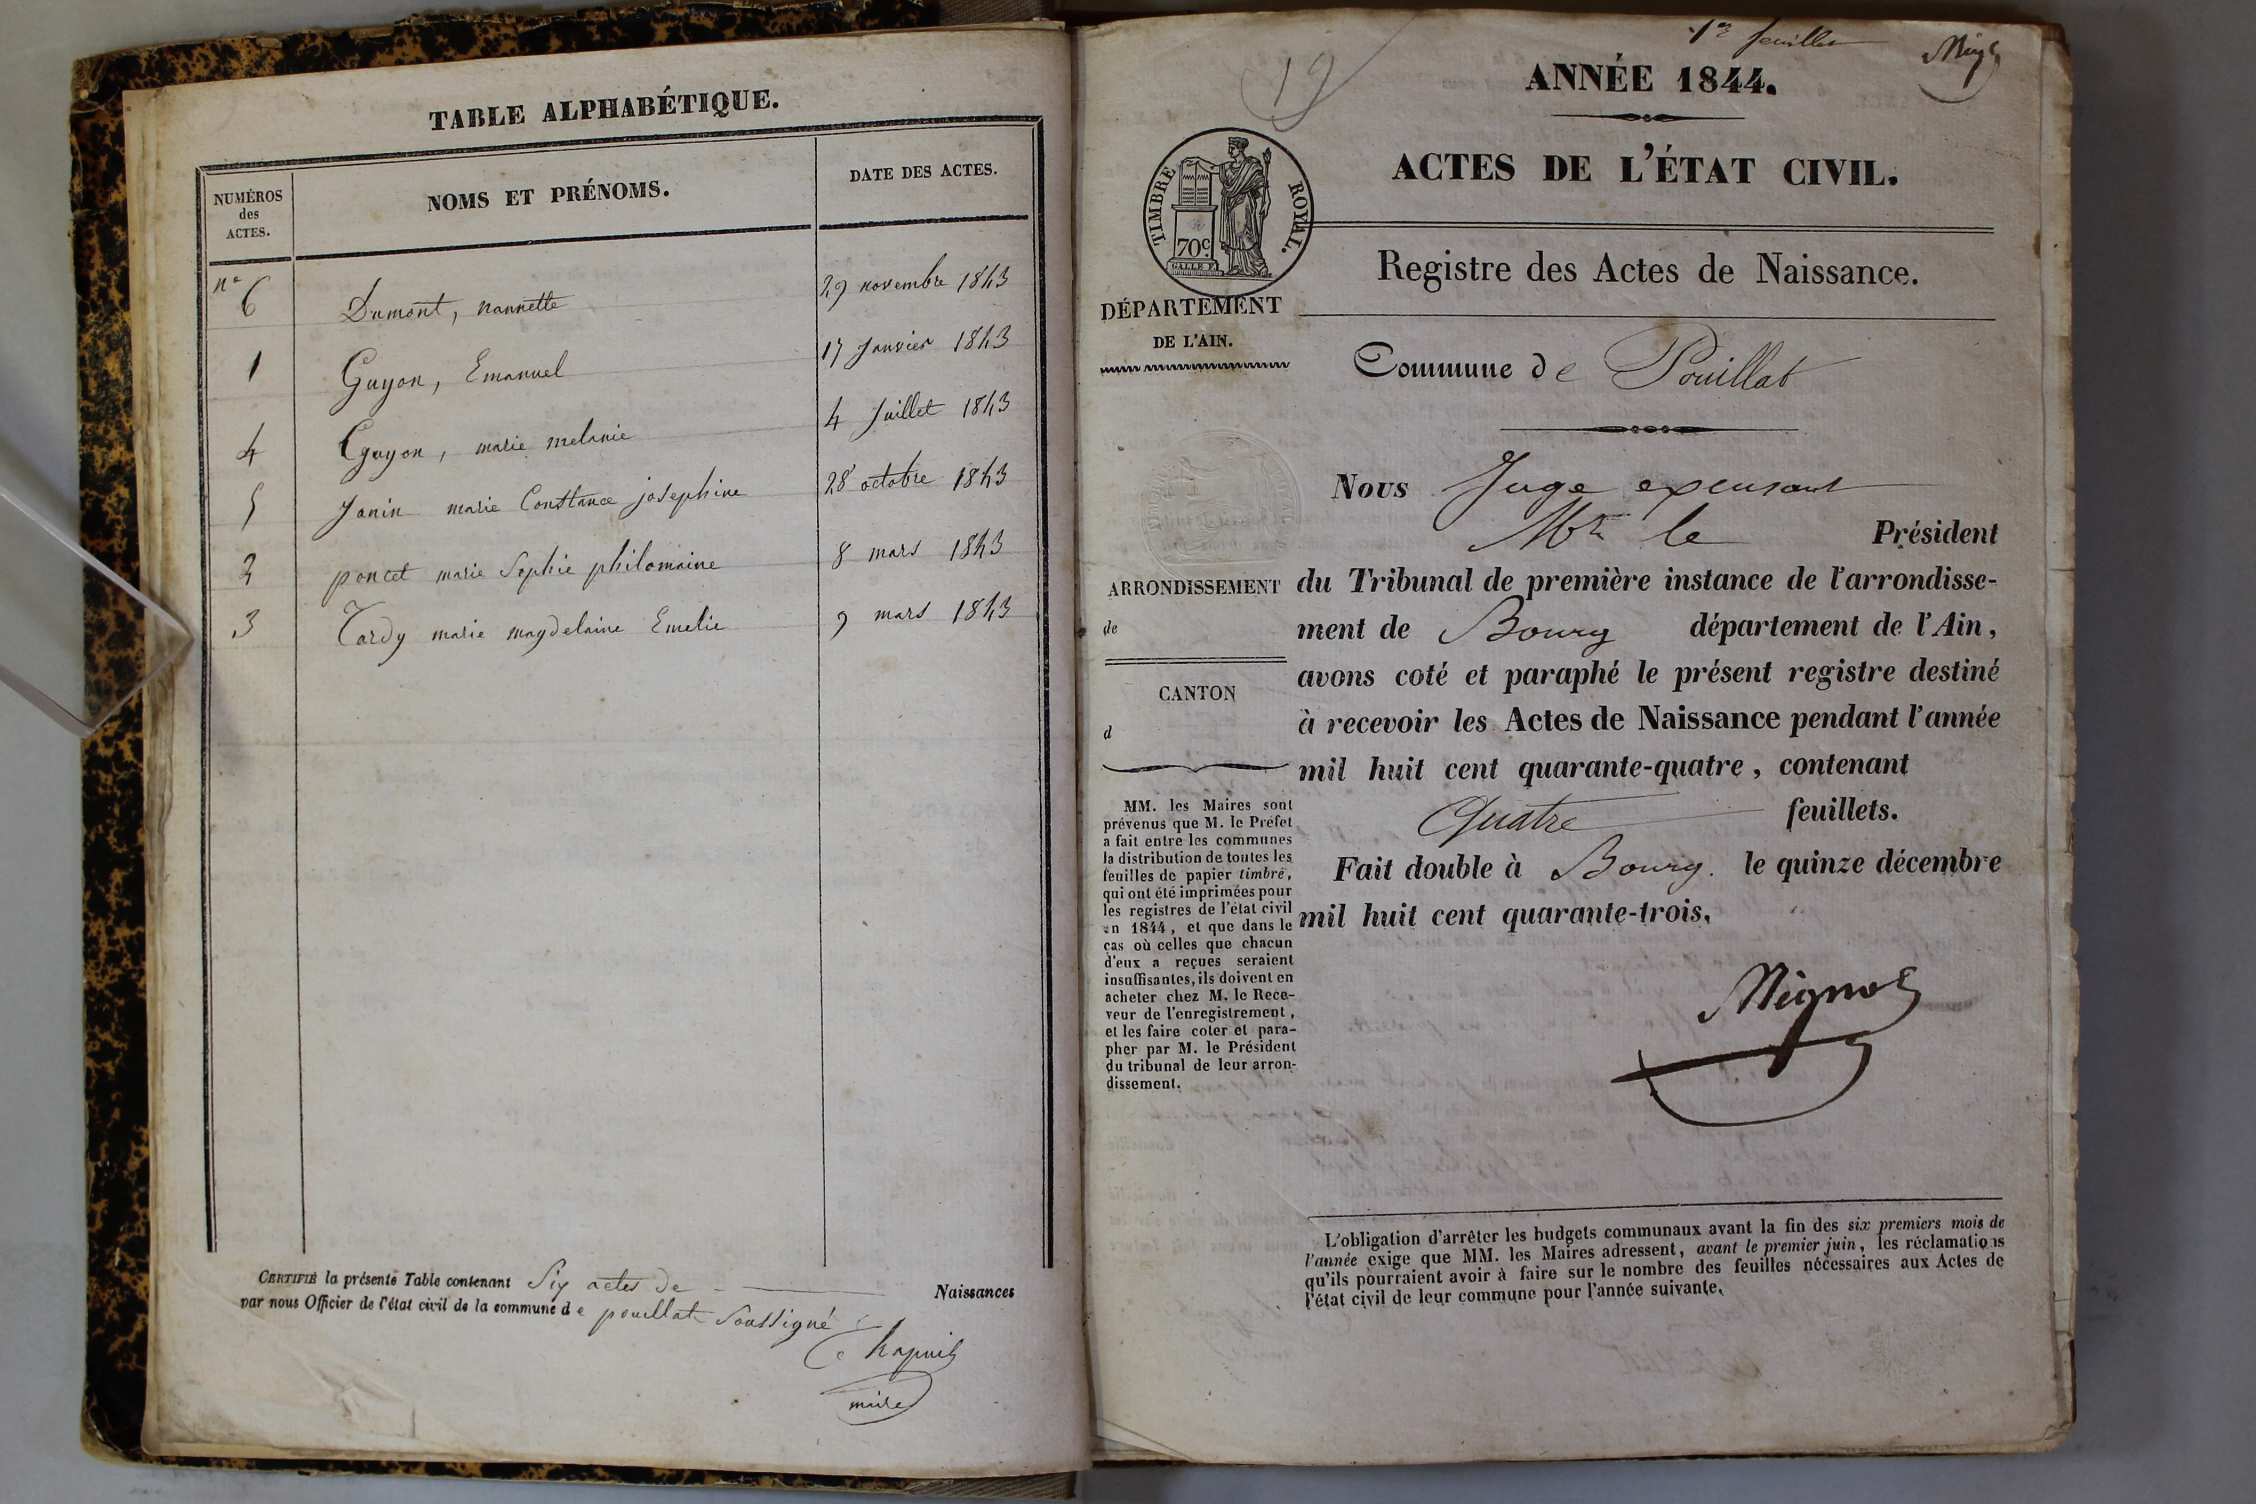 TABLE ALPHABÉTIQUE.
NUMÉROS des ACTES.
NOMS ET PRÉNOMS.
DATE DES ACTES.
n° 6 Dumont, nannette 29 novembre 1843
1 Guyon, Emanuel 17 Janvier 1843
4 Guyon, marie melanie 4 Juillet 1843
5 Janin marie Constance josephine 28 octobre 1843
2 poncet marie Sophie philomaine 8 mars 1843
3 Tardy marie magdelaine Emelie 9 mars 1843
CERTIFIÉ la présente Table contenant Six actes de Naissances
par nous Officier de l'état civil de la commune de pouillat Soussigné
Chapuis
maire
1er feuillet
19
ANNÉE 1844.
ACTES DE L'ÉTAT CIVIL.
TIMBRE ROYAL.
70c
Registre des Actes de Naissance.
DÉPARTEMENT
DE L'AIN.
Commune de Pouillat
Nous Juge excusant
Mr. le Président
ARRONDISSEMENT
de
CANTON
d
du Tribunal de première instance de l'arrondisse-
ment de Bourg département de l'Ain,
avons coté et paraphé le présent registre destiné
à recevoir les Actes de Naissance pendant l'année
mil huit cent quarante-quatre, contenant
Quatre feuillets.
Fait double à Bourg. le quinze décembre
mil huit cent quarante-trois.
Mignot
MM. les Maires sont
prévenus que M. le Préfet
a fait entre les communes
la distribution de toutes les
feuilles de papier timbré,
qui ont été imprimées pour
les registres de l'état civil
en 1844, et que dans le
cas où celles que chacun
d'eux a reçues seraient
insuffisantes, ils doivent en
acheter chez M. le Rece-
veur de l'enregistrement,
et les faire coter et para-
pher par M. le Président
du tribunal de leur arron-
dissement.
L'obligation d'arrêter les budgets communaux avant la fin des six premiers mois de
l'année exige que MM. les Maires adressent, avant le premier juin, les réclamations
qu'ils pourraient avoir à faire sur le nombre des feuilles nécessaires aux Actes de
l'état civil de leur commune pour l'année suivante.